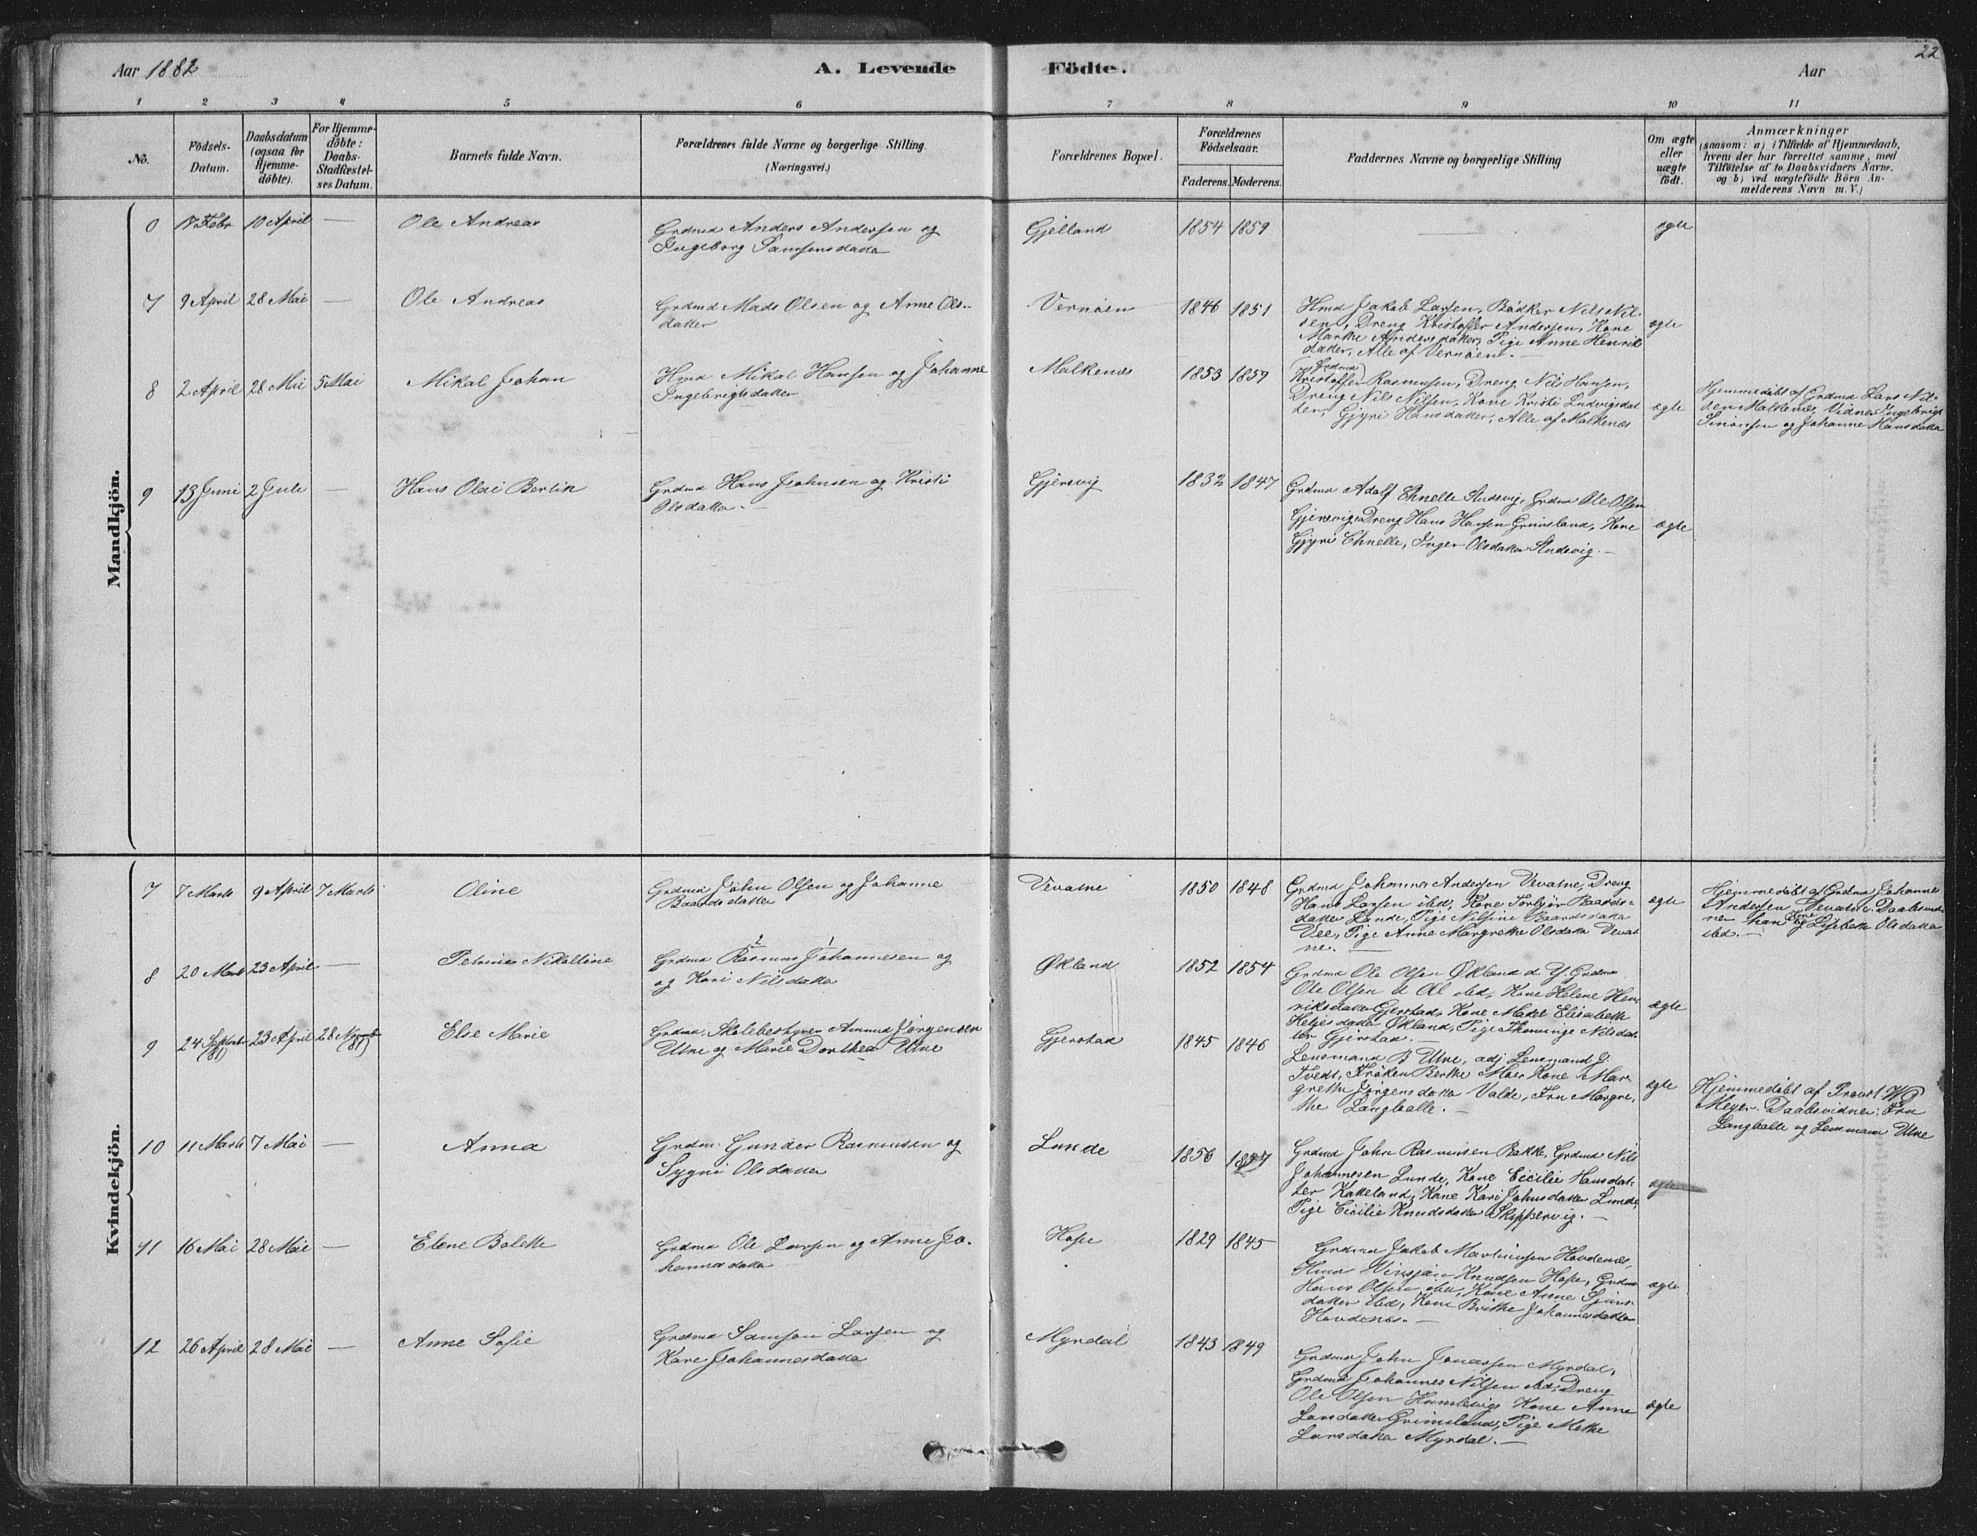 Aar 1882
A. Levende Födte.
Aar
22
1 2 3 4 5 6 7 8 9 10 11
No.
Födsels-Datum.
Daabsdatum (ogsaa for Hjemme-döbte).
For Hjemme-döbte: Daabs-Stadfæstel-ses Datum.
Barnets fulde Navn.
Forældrenes fulde Navne og borgerlige Stilling. (Næringsvei.)
Forældrenes Bopæl.
Forældrenes Födselsaar.
Faderens. Moderens.
Faddernes Navne og borgerlige Stilling
Om ægte eller uægte födt.
Anmærkninger
(saasom: a) i Tilfælde af Hjemmedaab,
hvem der har forrettet samme, med
Tilföielse af to Daabsvidners Navne.
og b) ved uægtefödte Börn An-
melderens Navn m. V.;
Mandkjön.
17 Febr 10 April — Ole Andreas
Grdmd Anders Andersen og
Ingeborg Samsonsdatter
Gjelland 1854 1859 — ægte
7 9 April 28 Mai — Ole Andreas
Grdmd Mads Olsen og Anne Ols-
datter
Vernøen 1846 1851
Hmd Jakob Larsen, Bødker Nils Nil-
sen, Dreng Kristoffer Andersen, Kone
Marthe Andersdatter, Pige Anne Henrik
datter, Alle af Vernøen. —
ægte
8 2 April 28 Mai 5 Mai Mikal Johan
Hmd Mikal Hansen og Johanne
Ingebrigtsdatter
Malkenæs 1853 1859
(Grdmd)
Kristoffer Rasmussen, Dreng Nils Hansen,
Dreng Nils Nilsen, Kone Kristi Ludvigsdat
ter, Gjyri Hansdatter, Alle af Malkenæs
ægte
Hjemmedøbt af Grdmd Lars Nil-
sen Malkenæs, Vidner Ingebrigt
Simonsen og Johanne Hansdatter
9 13 Juni 2 Juli — Hans Olai Bertin
Grdmd Hans Johnsen og Kristi
Olsdatter. —
Gjersvig 1832 1847
Grdmd Adolf Chnelle Andsvig, Grdmd Ole Olsen
Gjersvig, Dreng Hans Hansen Grimsland, Kone
Gjyri Chnelle, Inger Olsdatter Andsvig. —
ægte
Kvindekjön.
7 7 Marts 9 April 7 Marts Oline
Grdmd John Olsen og Johanne
Baardsdatter
Vevatne 1850 1848
Grdmd Johannes Andersen Vevatne, Dreng
Hans Larsen ibd, Kone Torbjør Baards-
datter Lunde, Pige Nilsine Baardsdatter
Vee, Pige Anne Margrethe Olsdatter Vevat
ne. —
ægte
Hjemmedøbt af Grdmd Johannes
Andersen Vevatne. Daabsvid-
ner han og Lisbeth Olsdatter
ibd. —
8 20 Marts 23 April — Petrine Nikoline
Grdmd Rasmus Johannesen og
og Kari Nilsdatter
Økland 1852 1854
Grdmd Ole Olsen Økland d. Y. Grdmd
Ole Olsen d Æl ibd, Kone Helene Hen
riksdatter Gjerstad, Kone Madel Elisabeth
Helgesdatter Økland, Pige Thominge Nilsdat
ter Gjerstad. —
ægte
9 24 Septembr (81) 23 April 28 Novemb (81) Else Marie
Grdmd, Skolebestyrer Amund Jørgensen
Utne og Marie Dorthea Utne
Gjerstad 1845 1846
Lensmand B Utne, adj Lensmand J.
Tvedt, Frøken Berthe Moer Kone Mar-
grethe Jørgensdatter Valde, Fru Margre-
the Langballe. —
ægte
Hjemmedøbt af Provst W
Meyer. Daabsvidner: Fru
Langballe og Lensmand Utne
10 11 Marts 7 Mai — Anna
Grdm. Gunder Rasmussen og
Sygni Olsdatter
Lunde 1856 1857
Grdmd John Rasmussen Bakke, Grdmd Nils
Johannesen Lunde, Kone Cecilie Hansdat-
ter Kakeland, Kone Kari Johnsdatter Lunde,
Pige Cicilie Knudsdatter Skippervig. —
ægte
11 16 Mai 28 Mai — Elene Bolette
Grdmd Ole Larsen og Anne Jo-
hannesdatter
Hope 1829 1845
Grdmd Jakob Martinusen Hovdenæs,
Hmd Vinsjan Knudsen Hope, Grdmd
Hans Olsen ibd, Kone Anne Sjurs-
datter ibd, Kone Brithe Johannesdatter
Hovdenæs. —
ægte
12 26 April 28 Mai — Anne Sofie
Grdmd Samson Larsen og
Kari Johannesdatter
Myrdal 1843 1849
Grdmd John Jonassen Myrdal,
Grdmd Johannes Nilsen ibd, Dreng
Ole Olsen Humlevig, Kone Anne
Larsdatter Grimsland, Pige Methe
Larsdatter Myrdal. —
ægte